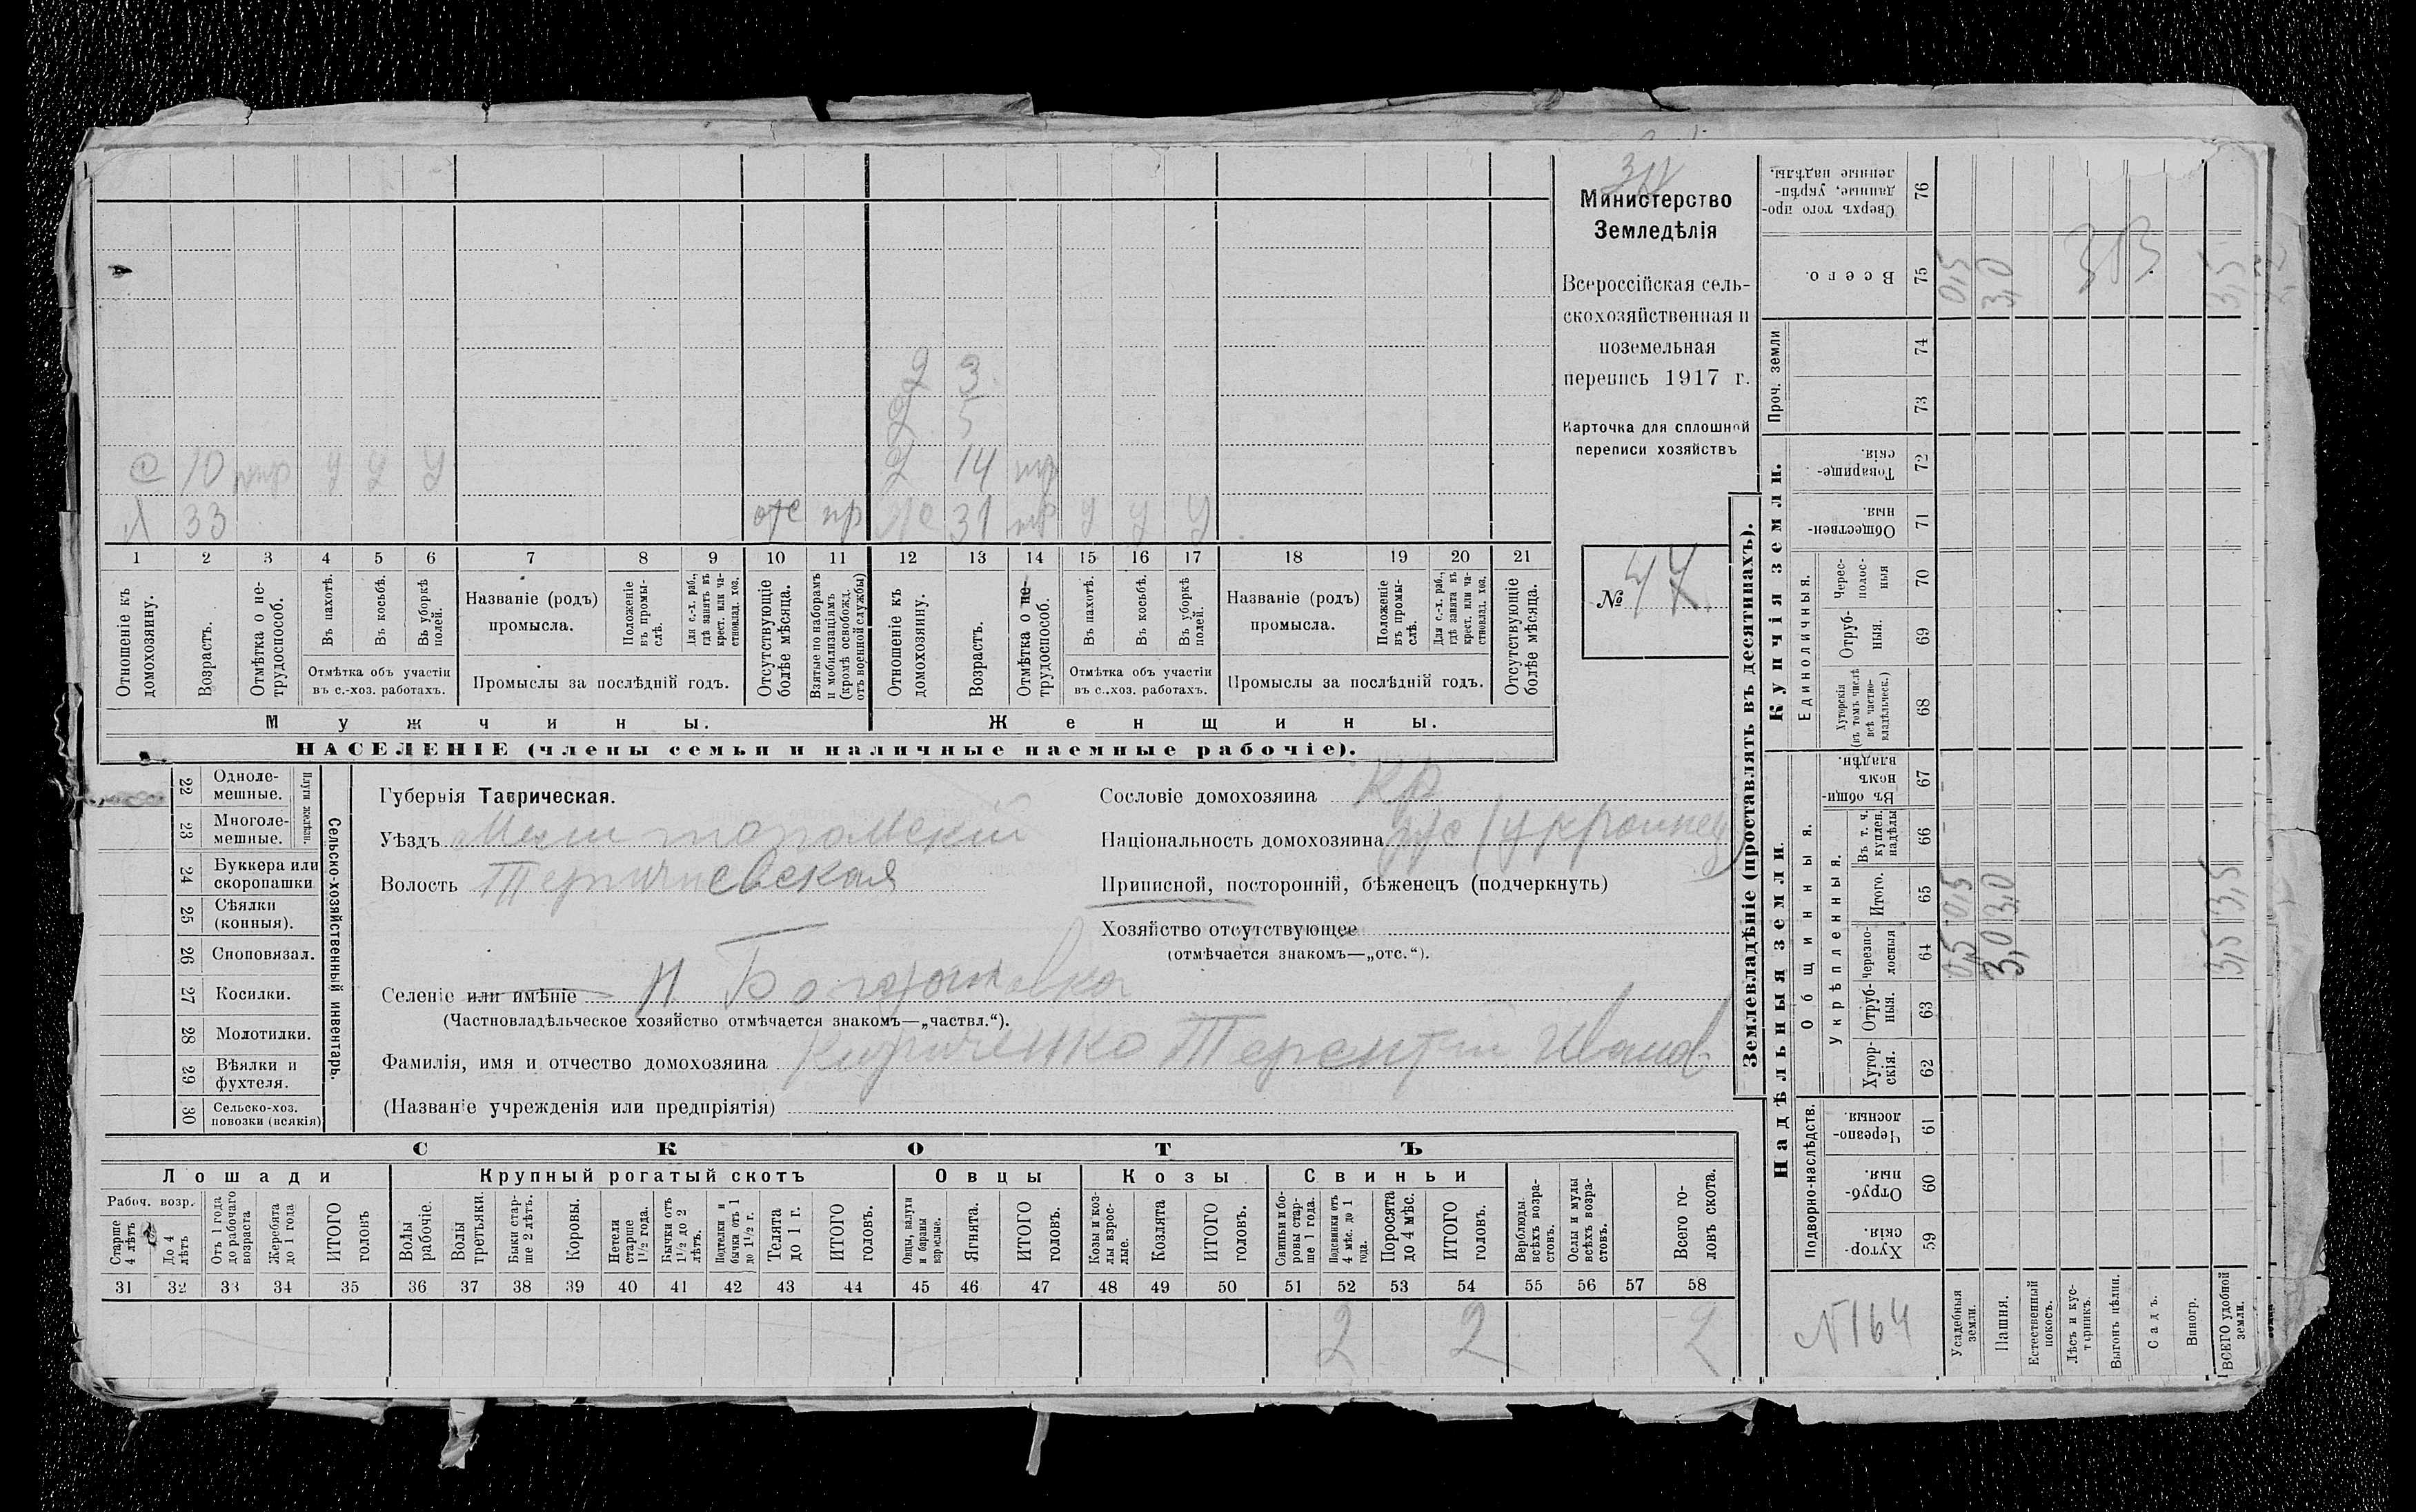 Министерство
Земледѣлія
Всероссійская сель-
скохозяйственная и
поземельная
перепись 1917 г.
Карточка для сплошной
переписи хозяйствъ
№ 47
Д 3
Д 5
С 10 у у у Д 14
Х 33 отс пр же 31 у у у
1 2 3 4 5 6 7 8 9 10 11 12 13 14 15 16 17 18 19 20 21
Отношеніе къ домохозяину.
Возрастъ.
Отмѣтка о не-трудоспособ.
Въ пахотѣ.
Въ косьбѣ.
Въ уборкѣ полей.
Отмѣтка объ участіи въ с.-хоз. работахъ.
Названіе (родъ) промысла.
Положеніе въ промы-слѣ.
Для с.-х. раб., гдѣ занятъ въ крест. или ча-стновлад. хоз.
Промыслы за послѣдній годъ.
Отсутствующіе болѣе мѣсяца.
Взятые по наборамъ и мобилизаціямъ (кромѣ освобожд. отъ военной службы)
Отношеніе къ домохозяину.
Возрастъ.
Отмѣтка о не-трудоспособ.
Въ пахотѣ.
Въ косьбѣ.
Въ уборкѣ полей.
Отмѣтка объ участіи въ с.-хоз. работахъ.
Названіе (родъ) промысла.
Положеніе въ промы-слѣ.
Для с.-х. раб., гдѣ занята въ крест. или ча-стновлад. хоз.
Промыслы за послѣдній годъ.
Отсутствующіе болѣе мѣсяца.
Мужчины. Женщины.
НАСЕЛЕНІЕ (члены семьи и наличные наемные рабочіе).
22 Одноле-мешные.
23 Многоле-мешные.
Плуги желѣзн.
24 Буккера или скоропашки
25 Сѣялки (конныя).
26 Сноповязал.
27 Косилки.
28 Молотилки.
29 Вѣялки и фухтеля.
30 Сельско-хоз. повозки (всякія)
Сельско-хозяйственный инвентарь.
Губернія Таврическая.
Уѣздъ Мелитопольскій
Волость Терпиніевская
Селеніе или имѣніе п. Богдановка
(Частновладѣльческое хозяйство отмѣчается знакомъ—„частвл.“).
Фамилія, имя и отчество домохозяина Кириченко Терентій Иванов
(Названіе учрежденія или предпріятія)
Сословіе домохозяина Кр
Національность домохозяина рус (украинец)
Приписной, посторонній, бѣженецъ (подчеркнуть)
Хозяйство отсутствующее
(отмѣчается знакомъ—„отс.“).
СКОТЪ
Лошади Крупный рогатый скотъ Овцы Козы Свиньи
Рабоч. возр.
Старше 4 лѣтъ
До 4 лѣтъ
Отъ 1 года до рабочаго возраста
Жеребята до 1 года
ИТОГО головъ
Волы рабочіе.
Волы третьяки.
Быки стар-ше 2 лѣтъ.
Коровы.
Нетели старше 1½ года.
Бычки отъ 1½ до 2 лѣтъ.
Подтелки и бычки отъ 1 до 1½ г.
Телята до 1 г.
ИТОГО головъ.
Овцы, валухи и бараны взрослые.
Ягнята.
ИТОГО головъ.
Козы и коз-лы взрос-лые.
Козлята
ИТОГО головъ.
Свиньи и бо-ровы стар-ше 1 года.
Подсвинки отъ 4 мѣс. до 1 года.
Поросята до 4 мѣс.
ИТОГО головъ.
Верблюды всѣхъ возра-стовъ.
Ослы и мулы всѣхъ возра-стовъ.
Всего го-ловъ скота.
31 32 33 34 35 36 37 38 39 40 41 42 43 44 45 46 47 48 49 50 51 52 53 54 55 56 57 58
2 2 2
Землевладѣніе (проставлять въ десятинахъ).
Надѣльныя земли.
Купчія земли.
Проч. земли
Подворно-наслѣдств.
Общинныя.
Укрѣпленныя.
Единоличныя.
Сверхъ того про-данные, укрѣп-ленные надѣлы. 76
Всего. 75 0,5 3,0 3,5
74
73
Товарище-скія. 72
Обществен-ныя. 71
Черес-полос-ныя 70
Отруб-ныя. 69
Хуторскія (въ томъ числѣ всѣ частно-владѣльческ.) 68
Въ общин-номъ владѣн. 67
Въ т. ч. куплен. надѣлы 66
Итого. 65 0,5 3,0 3,5
Черезпо-лосныя 64 0,5 3,0 3,5
Отруб-ныя. 63
Хутор-скія. 62
Черезпо-лосныя. 61
Отруб-ныя. 60
Хутор-скія. 59
N 164
Усадебныя земли.
Пашня.
Естественный покосъ.
Лѣсъ и кус-тарникъ.
Выгонъ цѣлин.
Садъ.
Виногр.
ВСЕГО удобной земли.